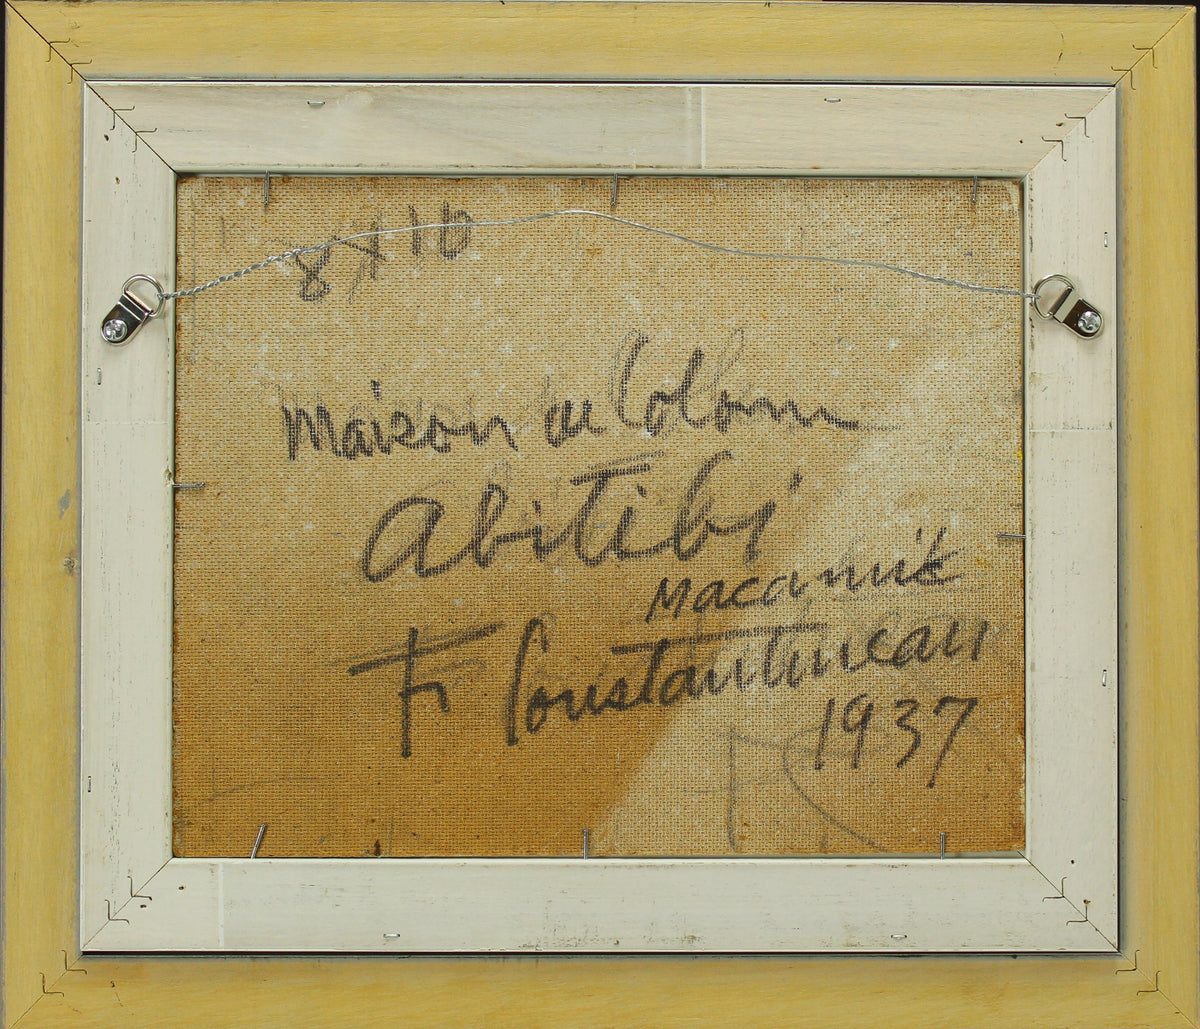 8 x 10
Maison de Colom
Abitibi
Macamic
Fr Constantineau
1937